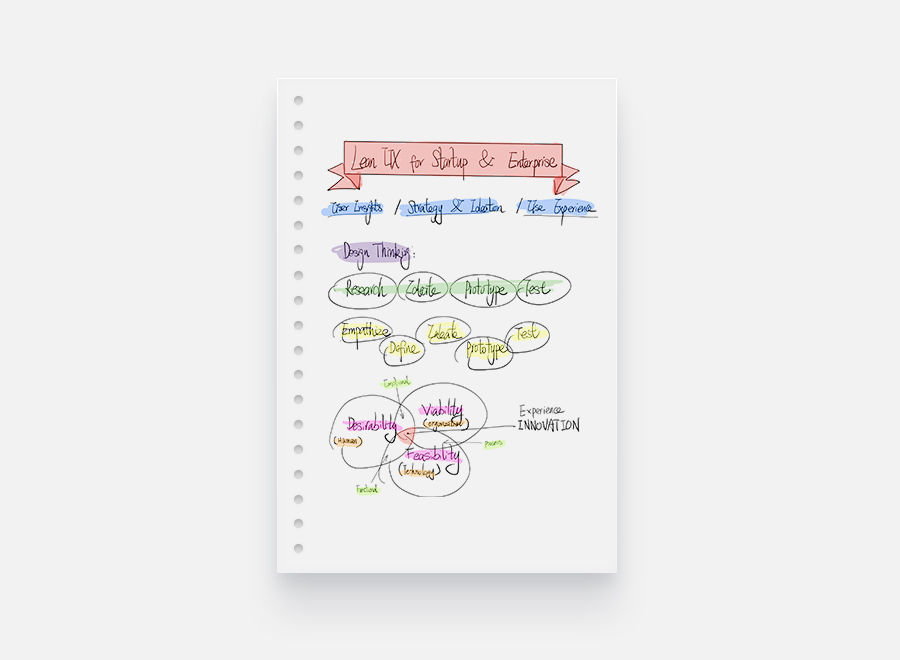 Lean UX for Startup & Enterprise
User Insights / Strategy & Ideation / Use Experience
Design Thinking:
Research Ideate Prototype Test
Empathize Define Ideate Prototype Test
Emotional
Desirability
(Human)
Viability
(organization)
Experience
INNOVATION
Process
Feasibility
(Technology)
Functional